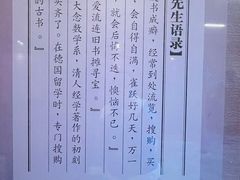 先生语录】
书成癖，经常到处流览，搜购，买
，会自得自满，雀跃好几天，万一
就会后悔不迭，懊恼不已。』
爱流连旧书摊寻宝。』
大念数学系，清人经学著作的初刻
买齐了。在德国留学时，专门搜购
的古书。』